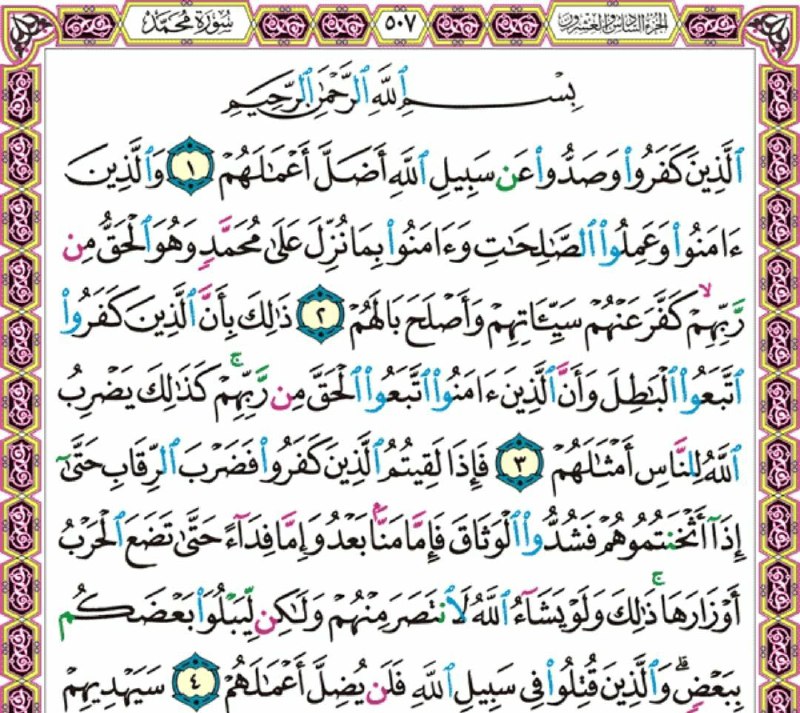 سُورَةُ مُحَمَّد ٥٠٧ الجزء السادس والعشرون
بِسْمِ ٱللَّهِ ٱلرَّحْمَٰنِ ٱلرَّحِيمِ
ٱلَّذِينَ كَفَرُوا۟ وَصَدُّوا۟ عَن سَبِيلِ ٱللَّهِ أَضَلَّ أَعْمَٰلَهُمْ ١ وَٱلَّذِينَ
ءَامَنُوا۟ وَعَمِلُوا۟ ٱلصَّٰلِحَٰتِ وَءَامَنُوا۟ بِمَا نُزِّلَ عَلَىٰ مُحَمَّدٍ وَهُوَ ٱلْحَقُّ مِن
رَّبِّهِمْ ۙ كَفَّرَ عَنْهُمْ سَيِّـَٔاتِهِمْ وَأَصْلَحَ بَالَهُمْ ٢ ذَٰلِكَ بِأَنَّ ٱلَّذِينَ كَفَرُوا۟
ٱتَّبَعُوا۟ ٱلْبَٰطِلَ وَأَنَّ ٱلَّذِينَ ءَامَنُوا۟ ٱتَّبَعُوا۟ ٱلْحَقَّ مِن رَّبِّهِمْ ۚ كَذَٰلِكَ يَضْرِبُ
ٱللَّهُ لِلنَّاسِ أَمْثَٰلَهُمْ ٣ فَإِذَا لَقِيتُمُ ٱلَّذِينَ كَفَرُوا۟ فَضَرْبَ ٱلرِّقَابِ حَتَّىٰٓ
إِذَآ أَثْخَنتُمُوهُمْ فَشُدُّوا۟ ٱلْوَثَاقَ فَإِمَّا مَنًّۢا بَعْدُ وَإِمَّا فِدَآءً حَتَّىٰ تَضَعَ ٱلْحَرْبُ
أَوْزَارَهَا ۚ ذَٰلِكَ وَلَوْ يَشَآءُ ٱللَّهُ لَٱنتَصَرَ مِنْهُمْ وَلَٰكِن لِّيَبْلُوَا۟ بَعْضَكُم
بِبَعْضٍ ۗ وَٱلَّذِينَ قُتِلُوا۟ فِى سَبِيلِ ٱللَّهِ فَلَن يُضِلَّ أَعْمَٰلَهُمْ ٤ سَيَهْدِيهِمْ